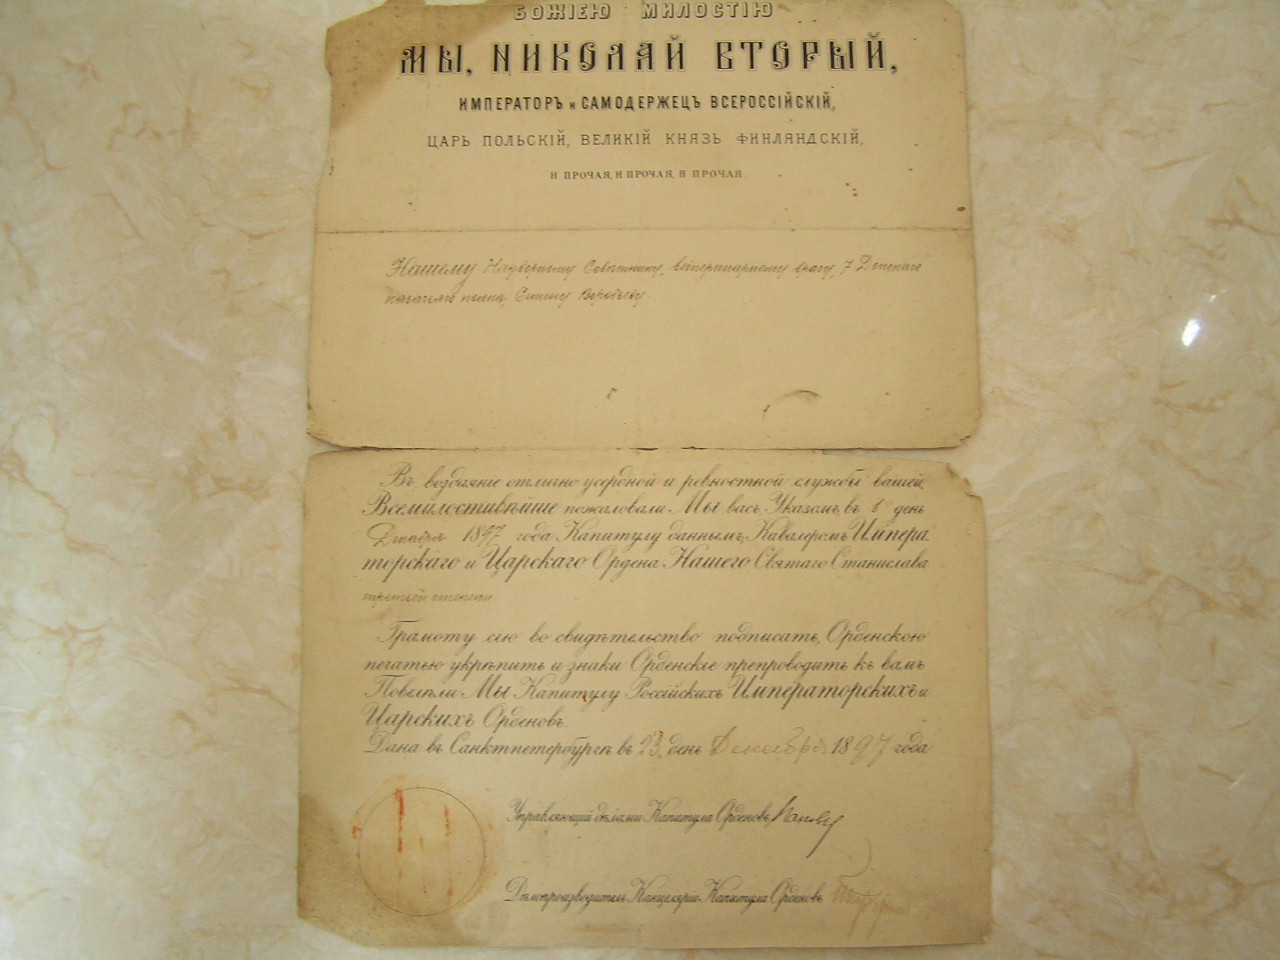 БОЖІЕЮ МИЛОСТІЮ
МЫ, НИКОЛАЙ ВТОРЫЙ,
ИМПЕРАТОРЪ и САМОДЕРЖЕЦЪ ВСЕРОССІЙСКІЙ,
ЦАРЬ ПОЛЬСКІЙ, ВЕЛИКІЙ КНЯЗЬ ФИНЛЯНДСКІЙ,
И ПРОЧАЯ, И ПРОЧАЯ, И ПРОЧАЯ.
Нашему Надворному Совѣтнику, ветеринарному врачу 7 Донскаго
казачьяго полка Воробьеву.
Въ воздаяніе отлично усердной и ревностной службы вашей,
Всемилостивѣйше пожаловали Мы васъ Указомъ въ 6 день
Декабря 1897 года Капитулу даннымъ, Кавалеромъ Импера
торскаго и Царскаго Ордена Нашего Святаго Станислава
третьей степени.
Грамоту сію во свидѣтельство подписать, Орденскою
печатью укрѣпить и знаки Орденскіе препроводить къ вамъ
Повелѣли Мы Капитулу Россійскихъ Императорскихъ и
Царскихъ Орденовъ.
Дана въ Санктпетербургѣ въ 23 день Декабря 1897 года
Управляющій дѣлами Капитула Орденовъ
Дѣлопроизводитель Канцеляріи Капитула Орденовъ